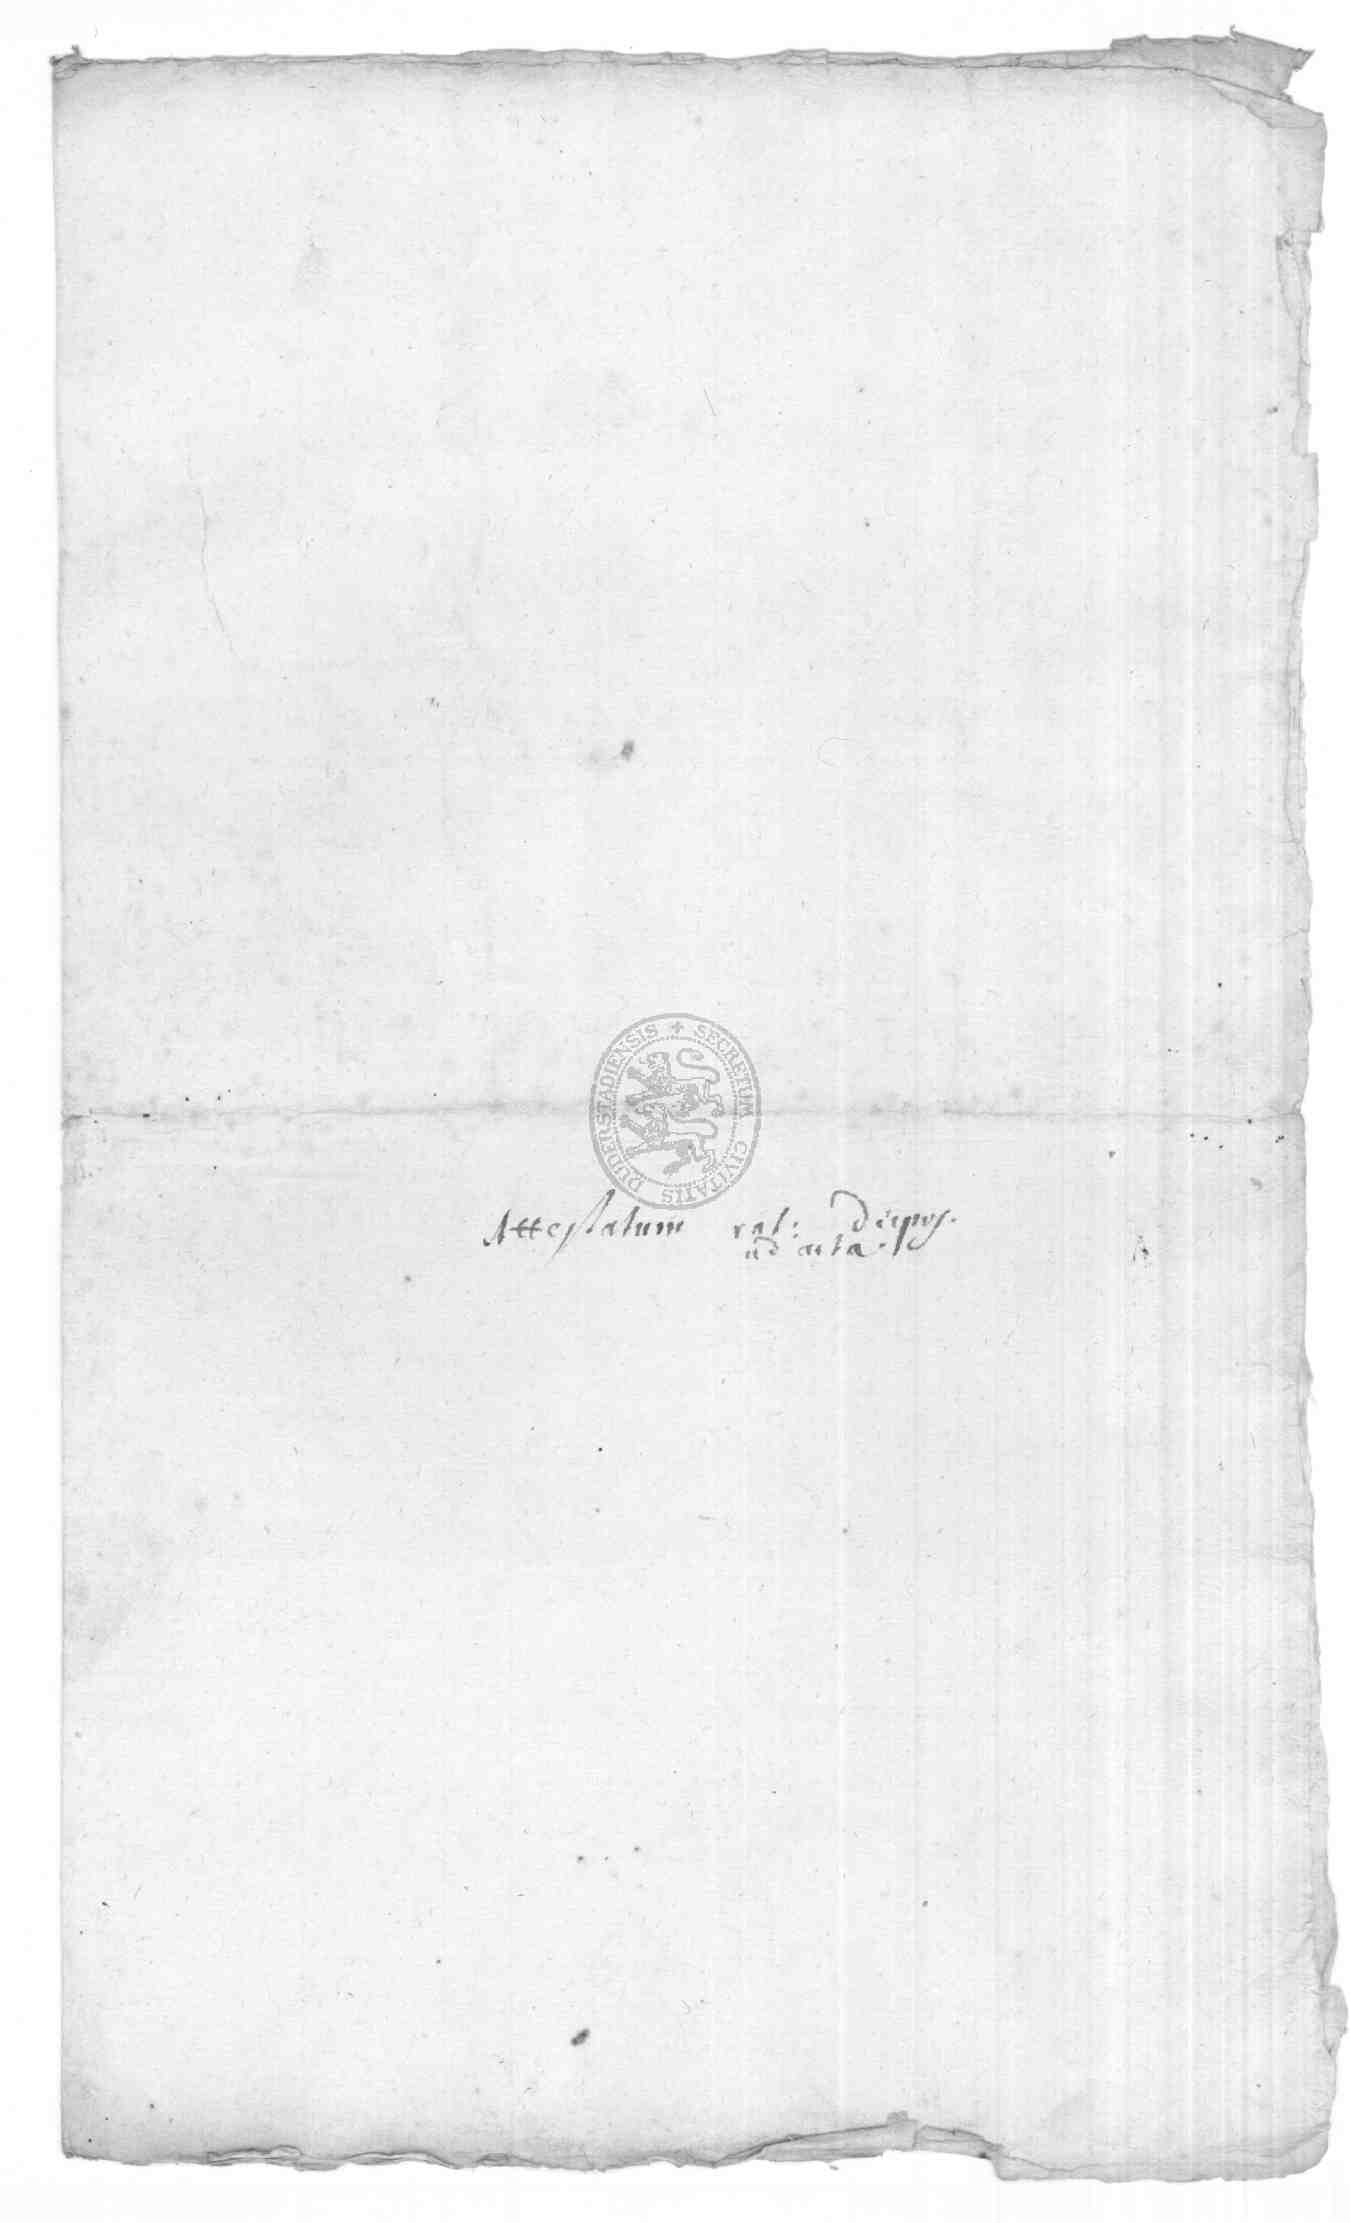 SECRETUM CIVITATIS DUDERSTADIENSIS +
Attestatum rat:
ad acta.